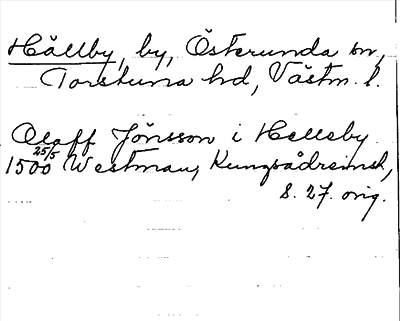 Hällby, by, Österunda sn,
Torstuna hd, Västm. l.
Olaff Jönsson i Helleby
25/5
1500 Westman, Kungsådreinsk,
s. 27. orig.